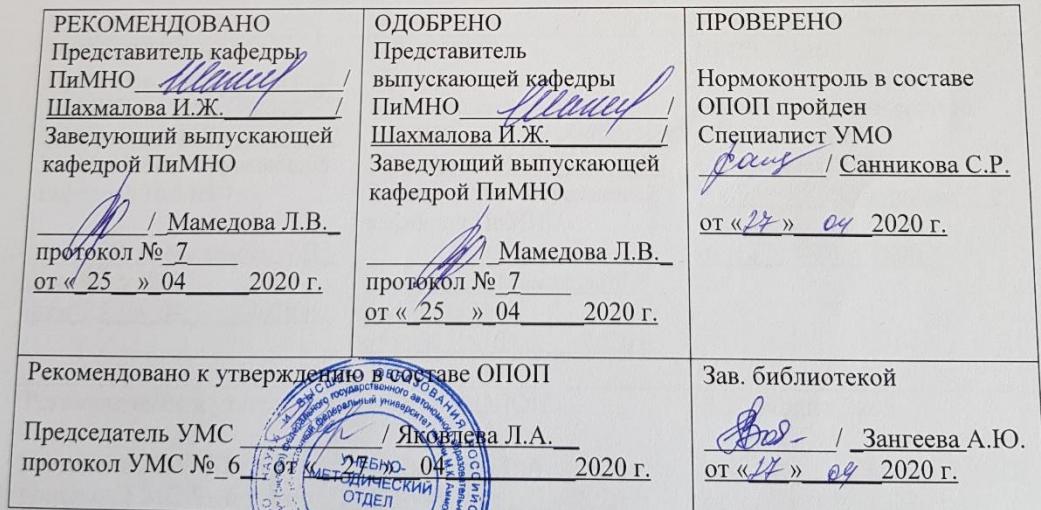 РЕКОМЕНДОВАНО
Представитель кафедры
ПиМНО /
Шахмалова И.Ж. /
Заведующий выпускающей
кафедрой ПиМНО
/ Мамедова Л.В.
протокол № 7
от « 25 » 04 2020 г.
ОДОБРЕНО
Представитель
выпускающей кафедры
ПиМНО /
Шахмалова И.Ж. /
Заведующий выпускающей
кафедрой ПиМНО
/ Мамедова Л.В.
протокол № 7
от « 25 » 04 2020 г.
ПРОВЕРЕНО
Нормоконтроль в составе
ОПОП пройден
Специалист УМО
/ Санникова С.Р.
от «27» 04 2020 г.
Рекомендовано к утверждению в составе ОПОП
Председатель УМС / Яковлева Л.А.
протокол УМС № 6 от « 27 » 04 2020 г.
УЧЕБНО-
МЕТОДИЧЕСКИЙ
ОТДЕЛ
Зав. библиотекой
/ Зангеева А.Ю.
от «27» 04 2020 г.